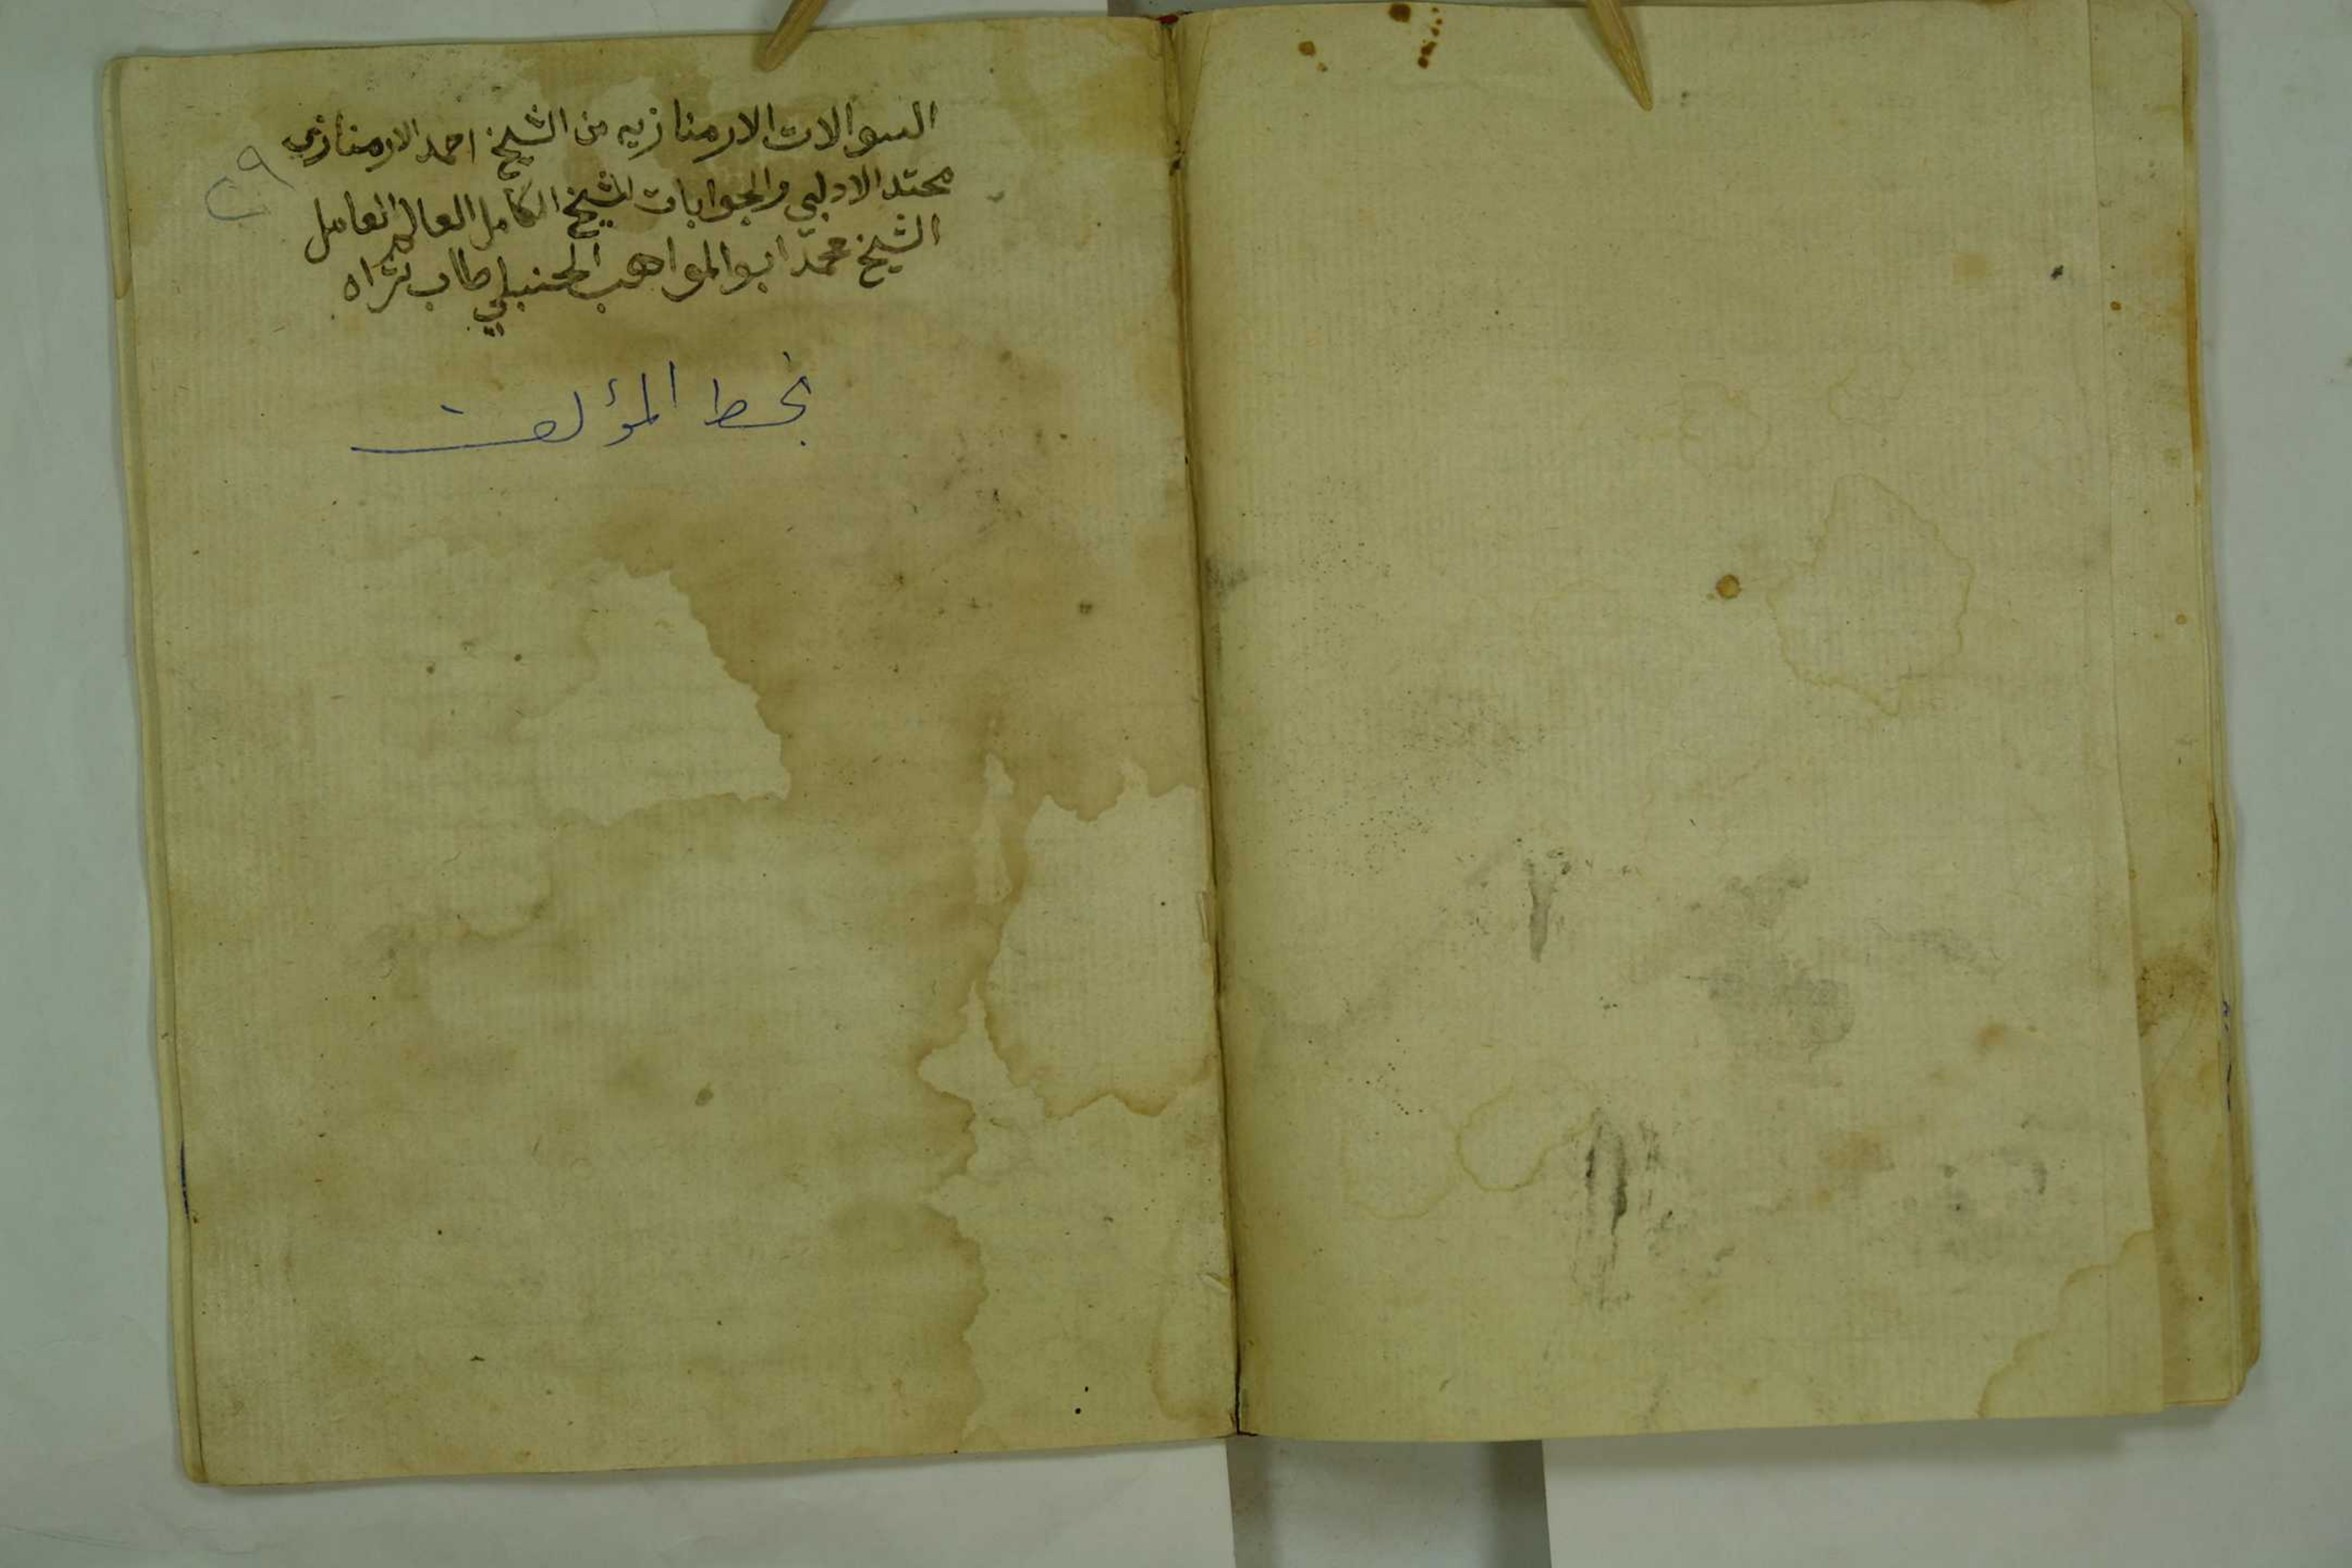 السوالات الارمنازيه من الشيخ احمد الارمنازي
محتد الادلبي والجوابات للشيخ الكامل العالم العامل
الشيخ محمد ابو المواهب الحنبلي طاب ثراه
٢٩
بخط المؤلف